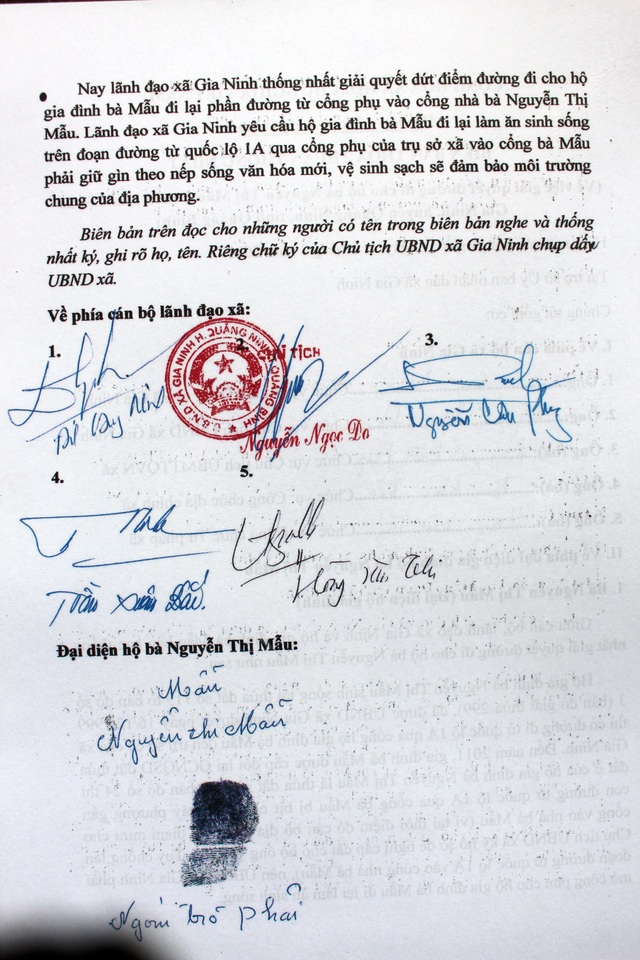 Nay lãnh đạo xã Gia Ninh thống nhất giải quyết dứt điểm đường đi cho hộ
gia đình bà Mẫu đi lại phần đường từ cổng phụ vào cổng nhà bà Nguyễn Thị
Mẫu. Lãnh đạo xã Gia Ninh yêu cầu hộ gia đình bà Mẫu đi lại làm ăn sinh sống
trên đoạn đường từ quốc lộ 1A qua cổng phụ của trụ sở xã vào cổng bà Mẫu
phải giữ gìn theo nếp sống văn hóa mới, vệ sinh sạch sẽ đảm bảo môi trường
chung của địa phương.
Biên bản trên đọc cho những người có tên trong biên bản nghe và thống
nhất ký, ghi rõ họ, tên. Riêng chữ ký của Chủ tịch UBND xã Gia Ninh chụp dấu
UBND xã.
Về phía cán bộ lãnh đạo xã:
1.
2.
3.
CHỦ TỊCH
U.B.N.D XÃ GIA NINH H. QUẢNG NINH T. QUẢNG BÌNH
Nguyễn Ngọc Do
Nguyễn Văn
4.
5.
Trần Xuân Bắc
Đại diện hộ bà Nguyễn Thị Mẫu:
Mẫu
Nguyễn thị Mẫu
Ngón trỏ phải